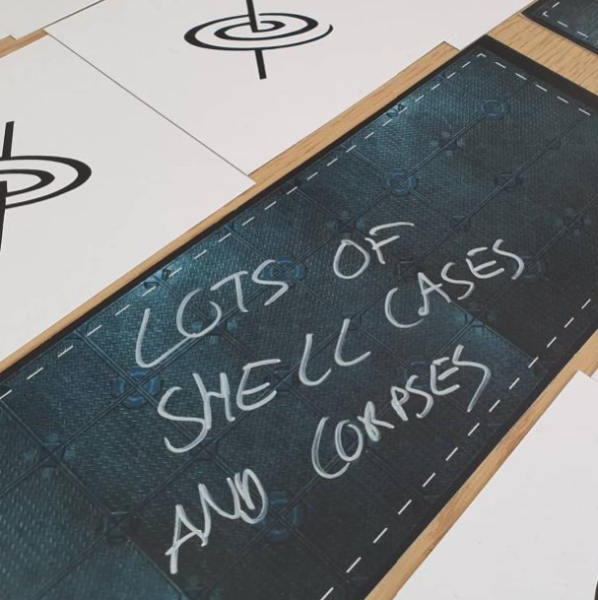 LOTS OF
SHELL CASES
AND CORPSES